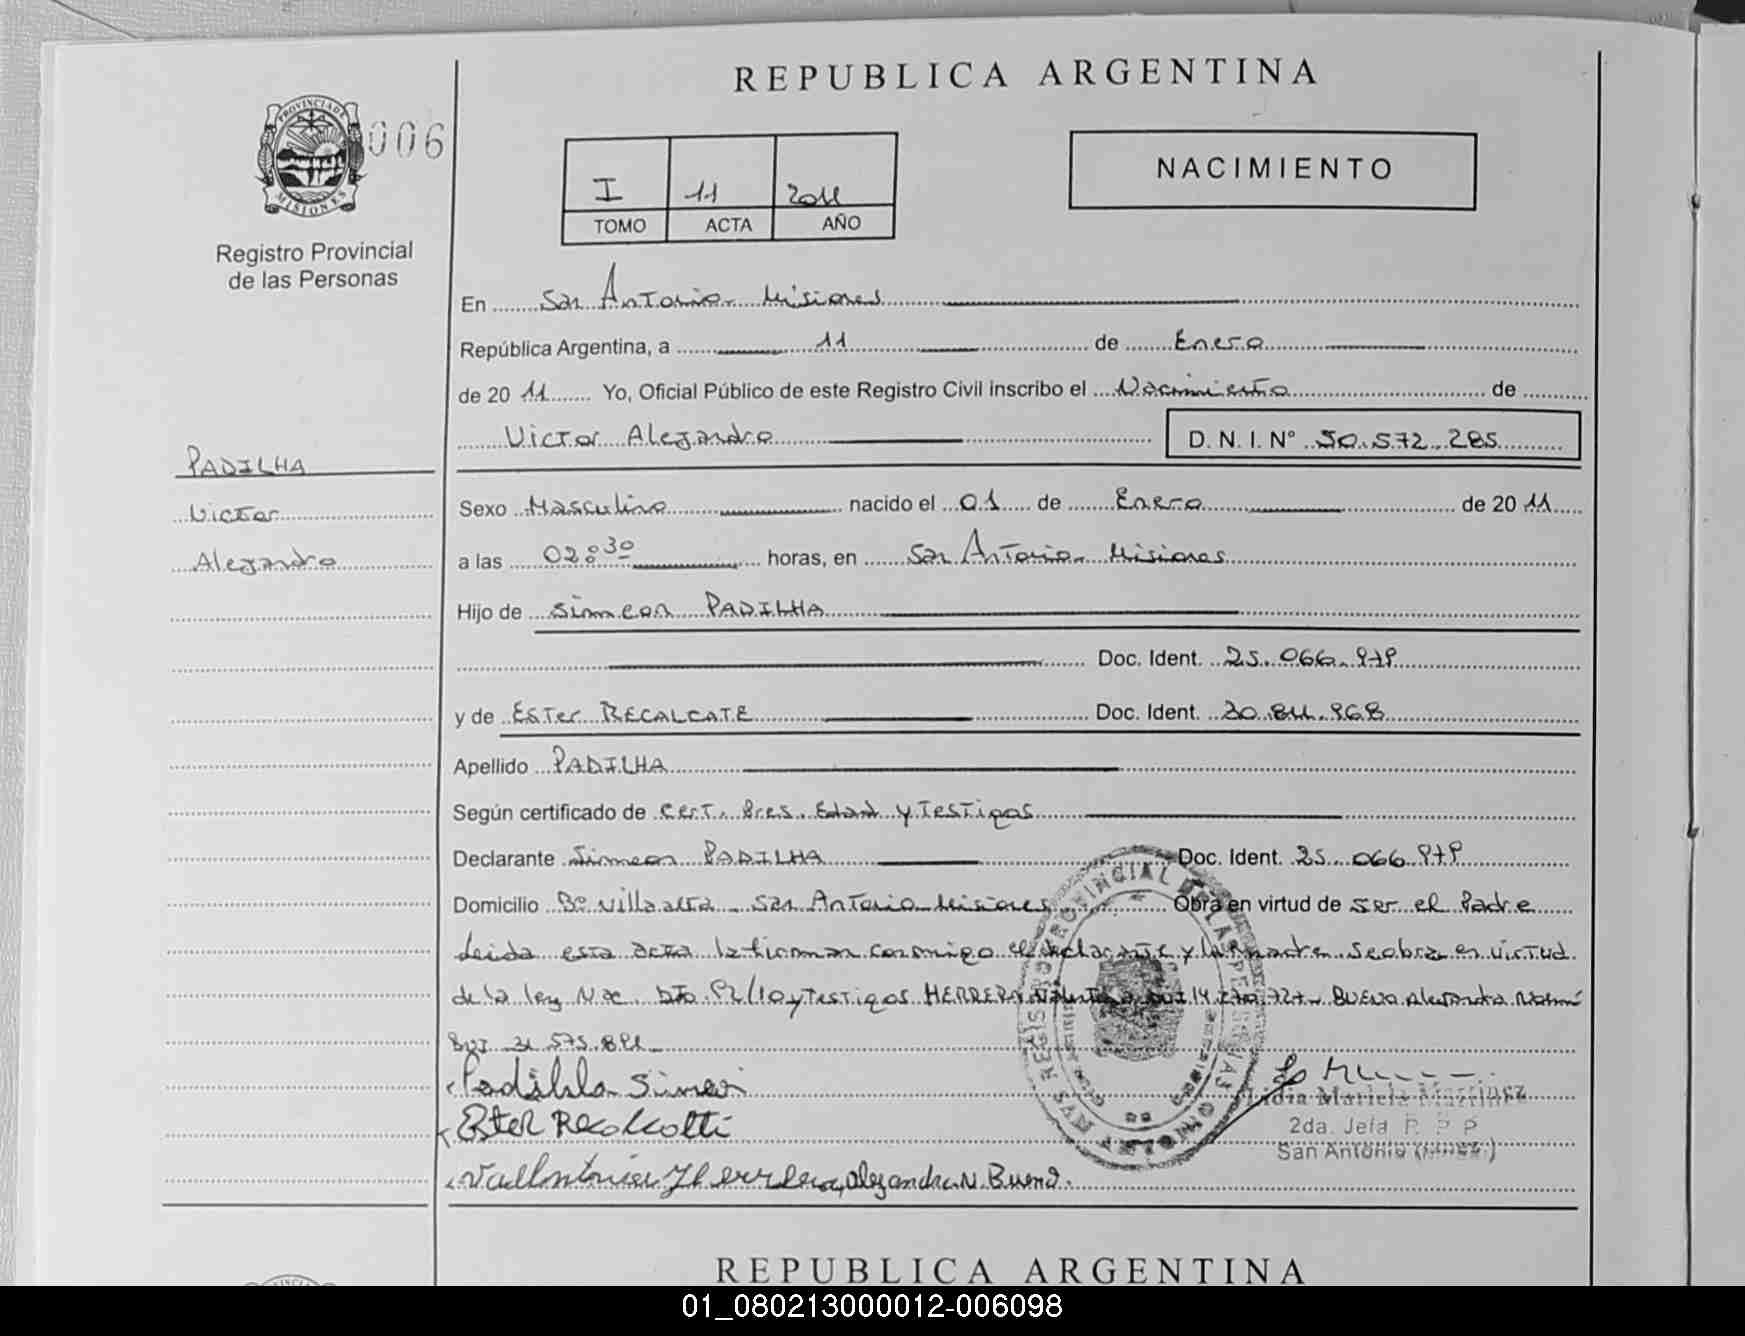 REPUBLICA ARGENTINA
PROVINCIA DE MISIONES
006
I 11 2011
TOMO ACTA AÑO
NACIMIENTO
Registro Provincial
de las Personas
En San Antonio Misiones
República Argentina, a 11 de Enero
de 2011 Yo, Oficial Público de este Registro Civil inscribo el Nacimiento de
Victor Alejandro D. N. I. N° 50.572.285
PADILHA
Victor
Alejandro
Sexo Masculino nacido el 01 de Enero de 2011
a las 02:30 horas, en San Antonio Misiones
Hijo de Simeon PADILHA
Doc. Ident. 25.066.979
y de Ester RECALCATE Doc. Ident.
Apellido PADILHA
Según certificado de Cert. Pres. Edad y Testigos
Declarante Simeon PADILHA Doc. Ident. 25.066.979
Domicilio Bº Villa alta San Antonio Misiones Obra en virtud de ser el Padre
Leida esta acta la firman conmigo el declarante y la madre. Se obra en virtud
de la ley Nac. Dto. 92/10 y Testigos HERRERA BUENO Alejandra
DNI
Padilha Simeon
Ester Recalcatti
Herrera, Alejandra N. Bueno.
REGISTRO PROVINCIAL DE LAS PERSONAS
SAN ANTONIO
Lidia Mariela Martinez
2da. Jefa R. P. P
San Antonio (Mnes.)
REPUBLICA ARGENTINA
01_080213000012-006098